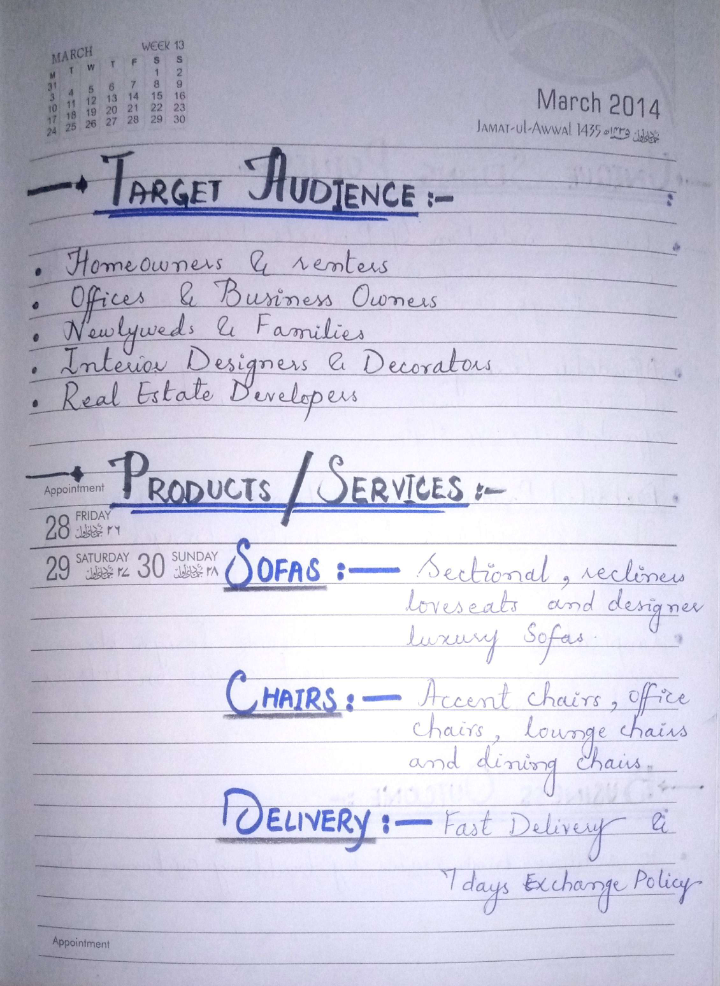 MARCH WEEK 13
M T W T F S S
31 1 2
3 4 5 6 7 8 9
10 11 12 13 14 15 16
17 18 19 20 21 22 23
24 25 26 27 28 29 30
March 2014
JAMAT-UL-AWWAL 1435
→ TARGET AUDIENCE :-
• Homeowners & renters
• Offices & Business Owners
• Newlyweds & Families
• Interior Designers & Decorators
• Real Estate Developers
→ PRODUCTS / SERVICES :-
Appointment
28 FRIDAY ۲۶
29 SATURDAY ۲۷ 30 SUNDAY ۲۸
SOFAS :— Sectional, recliners
loveseats and designer
luxury Sofas.
CHAIRS :— Accent chairs, office
chairs, lounge chairs
and dining chairs.
DELIVERY :— Fast Delivery &
7 days Exchange Policy
Appointment